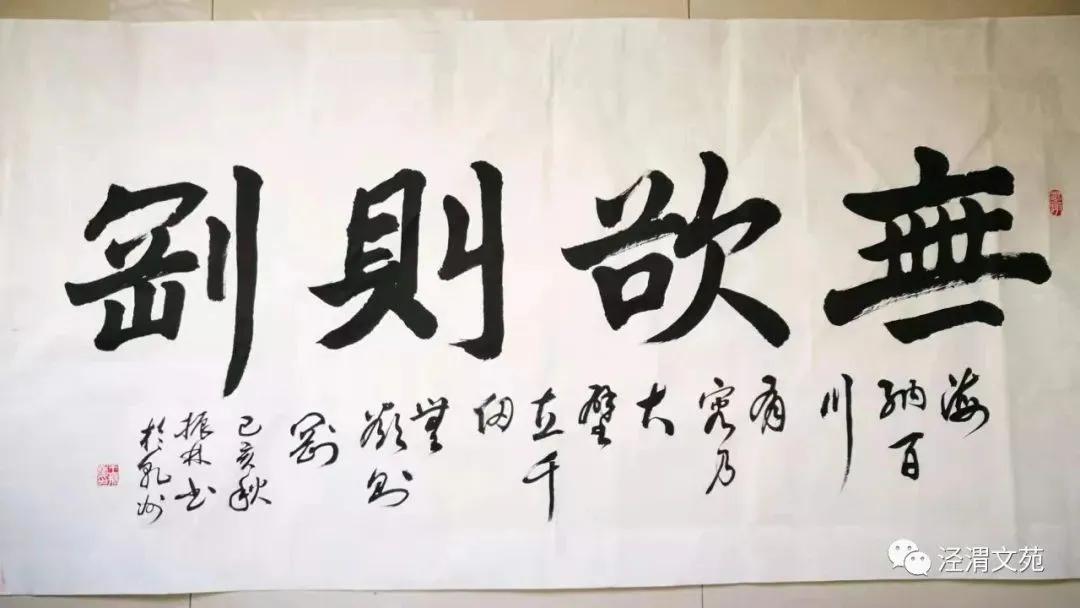 無欲則剛
海
納百
川
有
容乃
大
壁
立千
仞
無
欲則
剛
己亥秋
振林书
於乾州
泾渭文苑